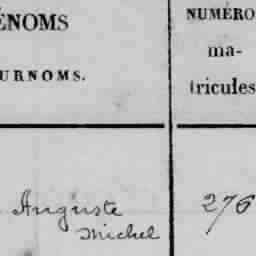 ÉNOMS
URNOMS.
NUMÉRO
ma-
tricules
Auguste
Michel
276